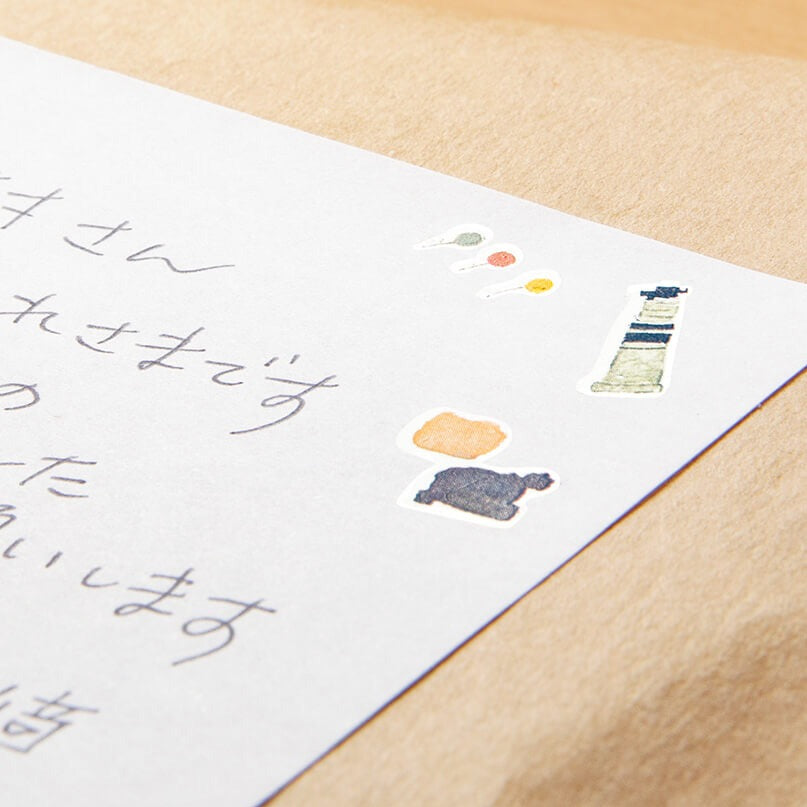 さん
れさまです
の
した
いします